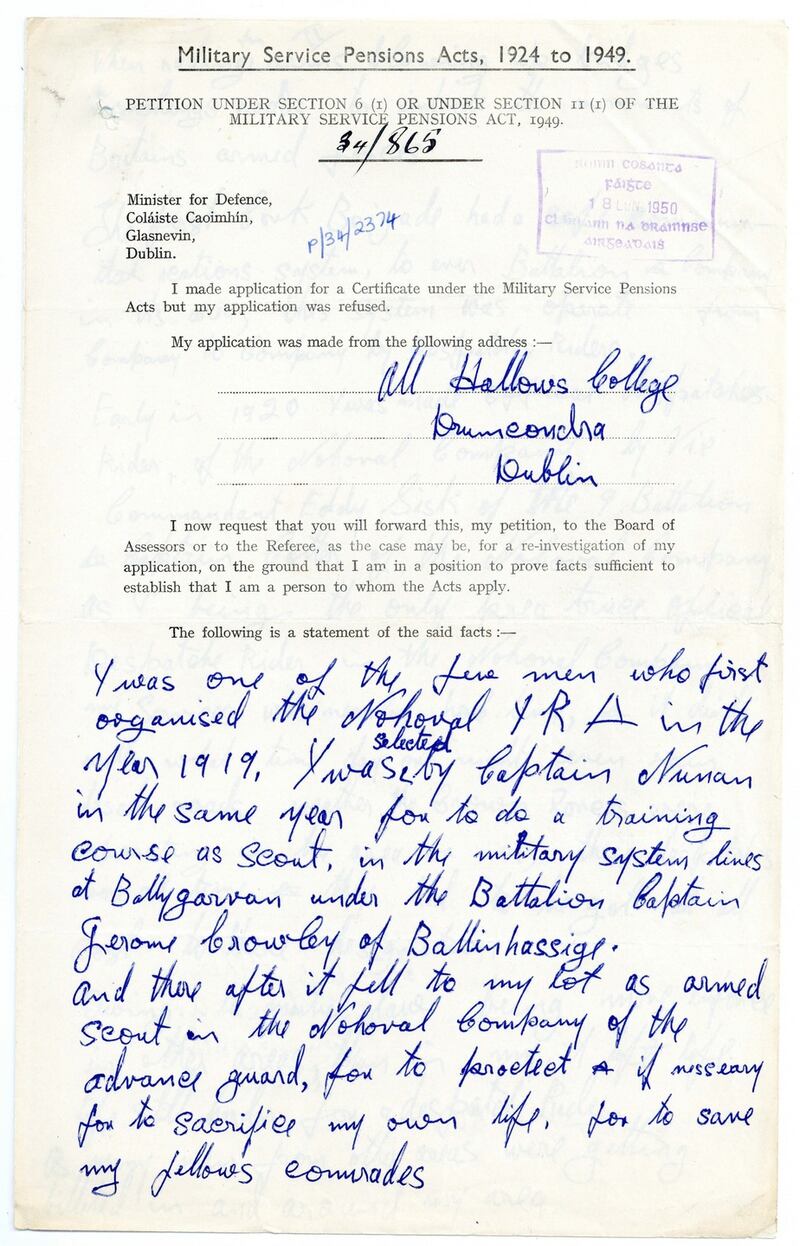 Military Service Pensions Acts, 1924 to 1949.
PETITION UNDER SECTION 6 (1) OR UNDER SECTION 11 (1) OF THE
MILITARY SERVICE PENSIONS ACT, 1949.
34/865
Minister for Defence,
Coláiste Caoimhín,
Glasnevin,
Dublin.
P/34/2374
ROINN COSANTA
FÁIGTE
18 LUN 1950
NA
AIRGEADAIS
I made application for a Certificate under the Military Service Pensions
Acts but my application was refused.
My application was made from the following address :—
All Hallows College
Drumcondra
Dublin
I now request that you will forward this, my petition, to the Board of
Assessors or to the Referee, as the case may be, for a re-investigation of my
application, on the ground that I am in a position to prove facts sufficient to
establish that I am a person to whom the Acts apply.
The following is a statement of the said facts :—
I was one of the few men who first
organised the Nohoval I R A in the
year 1919. I was selected by Captain Nunan
in the same year for to do a training
course as Scout, in the military system lines
at Ballygarvan under the Battalion Captain
Jerome Crowley of Ballinhassige.
And there after it fell to my lot as armed
Scout in the Nohoval Company of the
advance guard, for to proctect if nesseary
for to sacrifice my own life, for to save
my fellows comrades